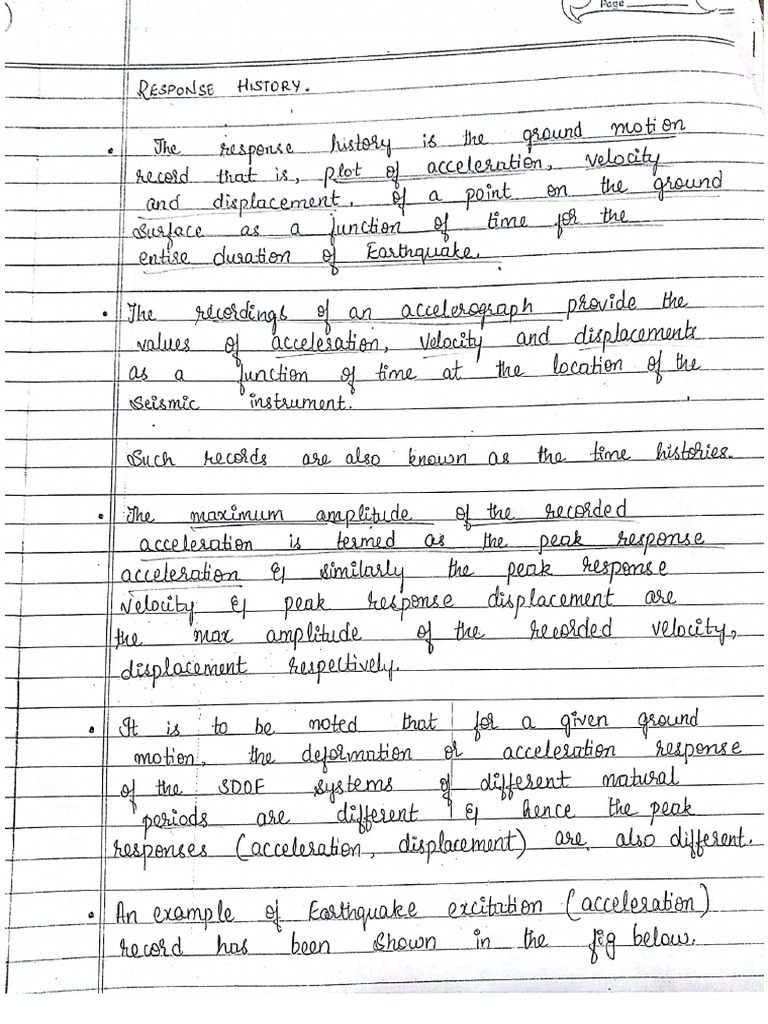 Page
RESPONSE HISTORY.
• The response history is the ground motion
record that is, plot of acceleration, velocity
and displacement, of a point on the ground
surface as a function of time for the
entire duration of Earthquake.
• The recordings of an accelerograph provide the
values of acceleration, velocity and displacements
as a function of time at the location of the
seismic instrument.
Such records are also known as the time histories.
• The maximum amplitude of the recorded
acceleration is termed as the peak response
acceleration & similarly the peak response
velocity & peak response displacement are
the max amplitude of the recorded velocity,
displacement respectively.
• It is to be noted that for a given ground
motion, the deformation or acceleration response
of the SDOF systems of different natural
periods are different & hence the peak
responses (acceleration, displacement) are also different.
• An example of Earthquake excitation (acceleration)
record has been shown in the fig below.